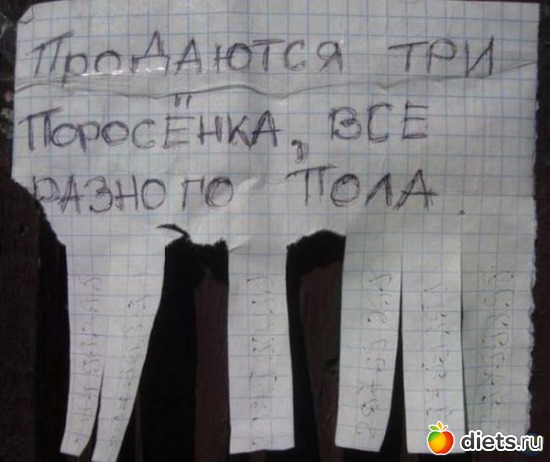 ПРОДАЮТСЯ ТРИ
ПОРОСЁНКА, ВСЕ
РАЗНОГО ПОЛА.
diets.ru